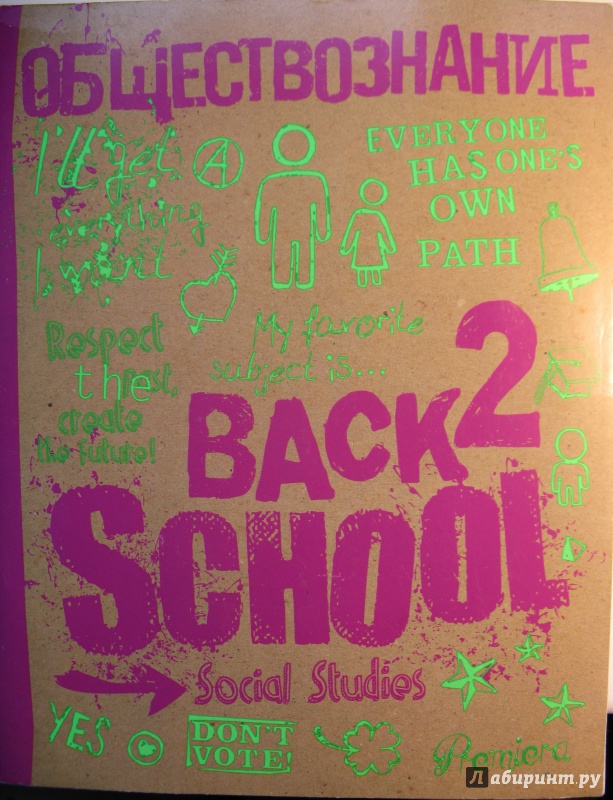 ОБЩЕСТВОЗНАНИЕ
I'll get
everything
I want
A
EVERYONE
HAS ONE'S
OWN
PATH
Respect
the past,
create
the future!
My favorite
subject is...
BACK 2
SCHOOL
Social Studies
YES
DON'T
VOTE!
Premiera
Лабиринт.ру